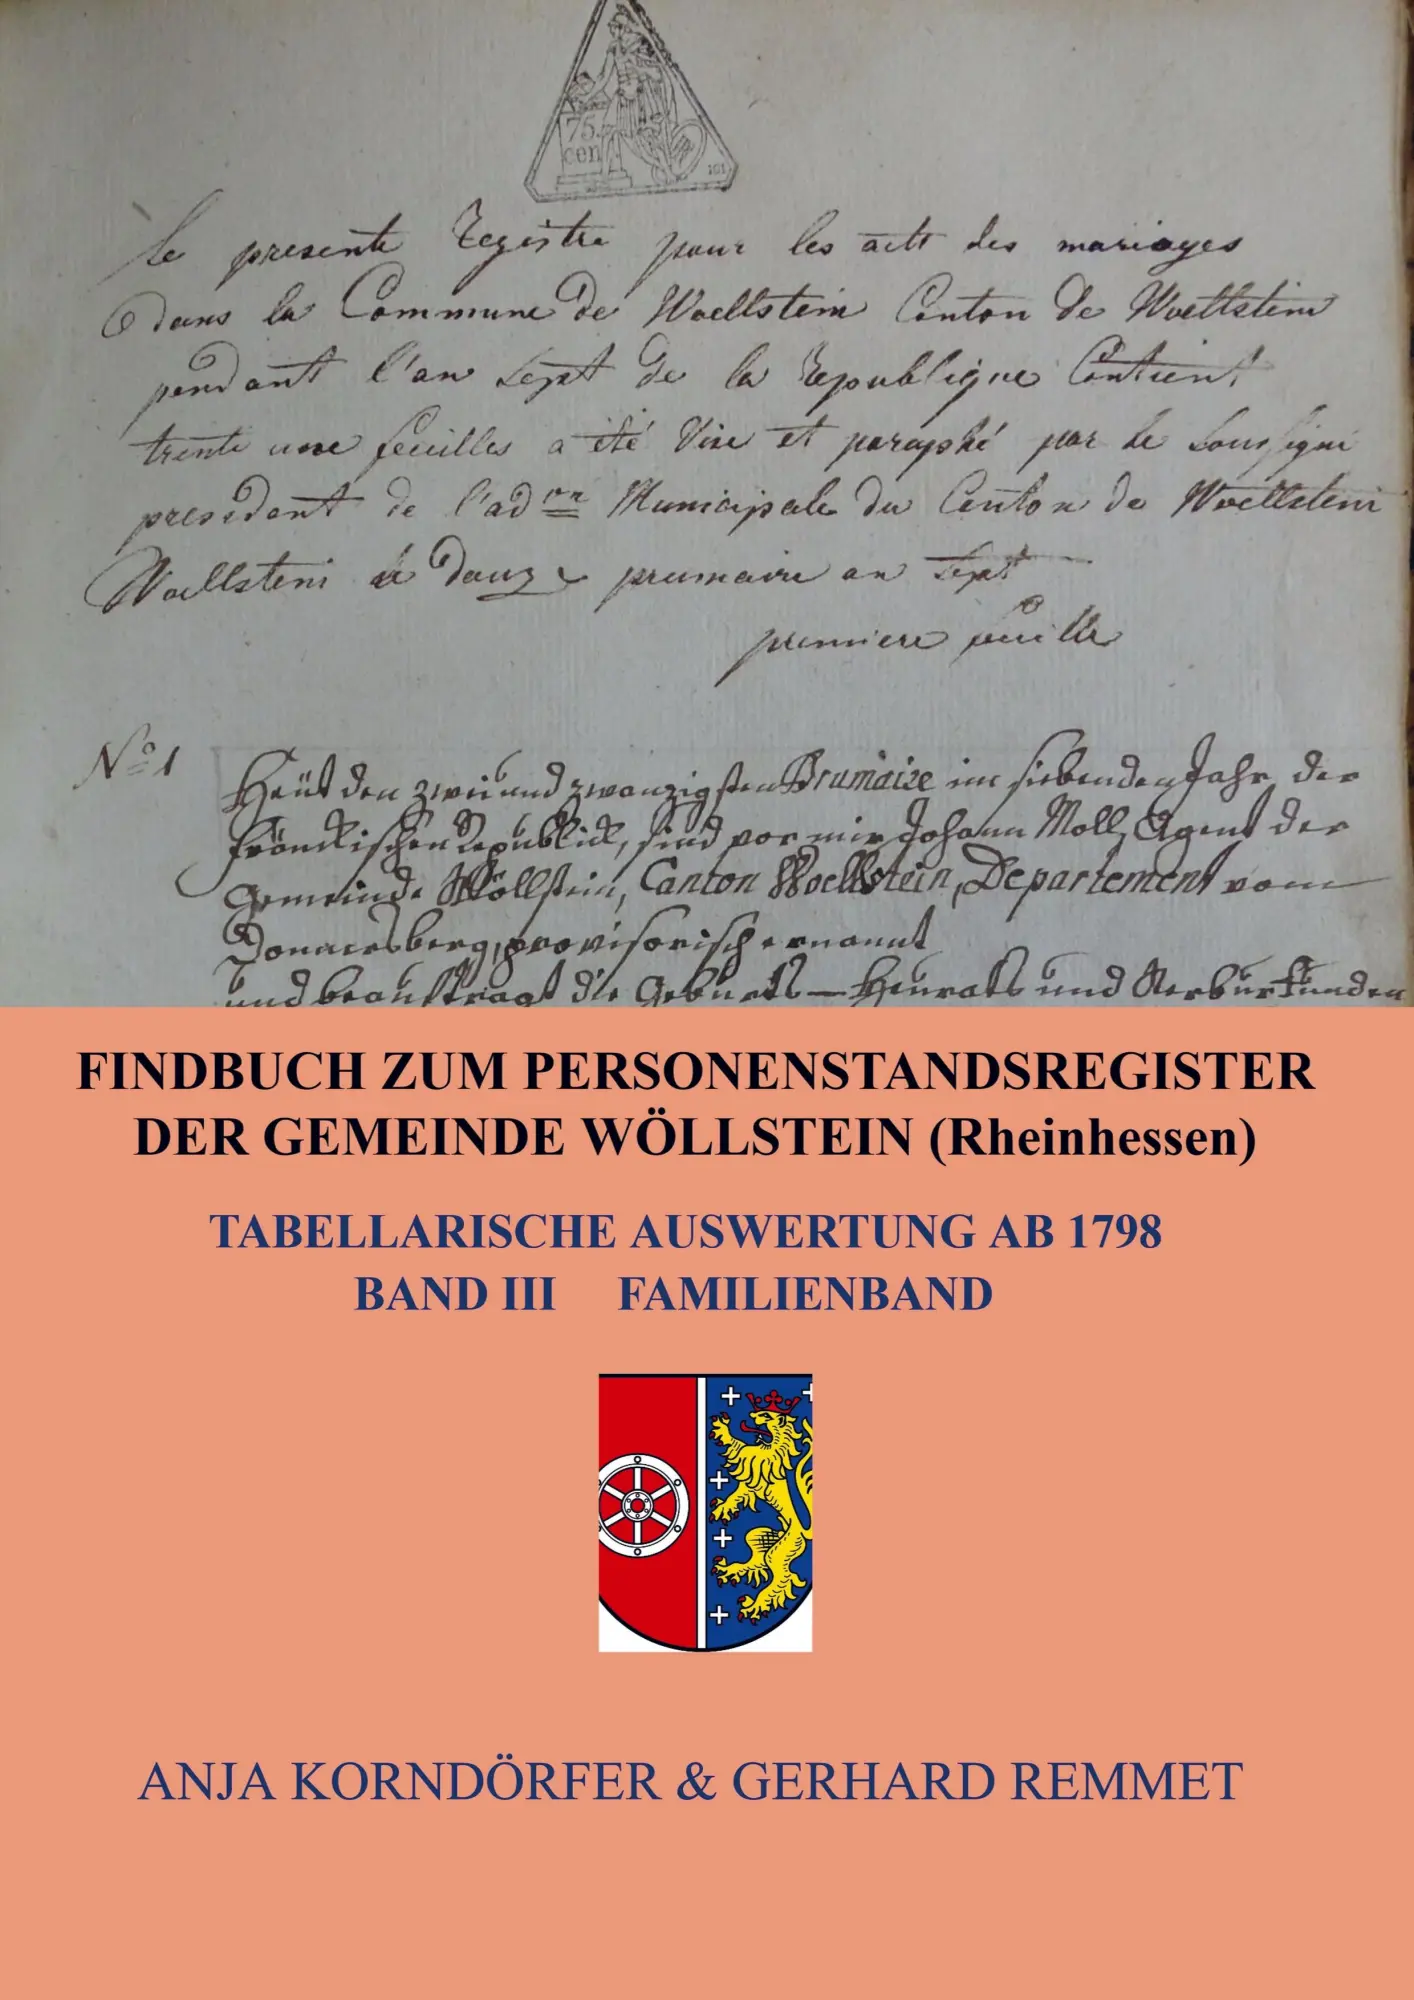 75.
cen
Le presente Registre pour les acts des mariages
dans la Commune de Woellstein Canton de Woellstein
pendant l'an sept de la Republique Contient
trente une feuilles a été Vise et paraphé par le Soussigné
president de l'ad.on Municipale du Canton de Woellstein
Woellstein le douze primaire an sept
premiere feuille
No 1
Heüt den zwei und zwanzigsten Brumaire im siebenden Jahr der
fränckischen Republick, sind vor mir Johann Moll, Agent der
Gemeinde Wöllstein, Canton Woellstein, Departement vom
Donnersberg, provisorisch ernannt
und beauftragt die Geburts- Heurats und Sterburkunden
FINDBUCH ZUM PERSONENSTANDSREGISTER
DER GEMEINDE WÖLLSTEIN (Rheinhessen)
TABELLARISCHE AUSWERTUNG AB 1798
BAND III FAMILIENBAND
ANJA KORNDÖRFER & GERHARD REMMET